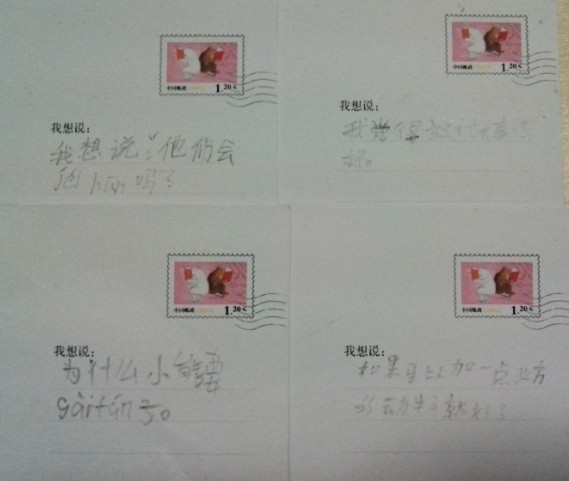 中国邮政
1.20元
我想说:
我想说:他们会
后 hǎn 吗?
中国邮政
1.20元
我想说:
我觉得这个故事很
好。
中国邮政
1.20元
我想说:
为什么小熊要
gāi tán 了。
中国邮政
1.20元
我想说:
如果可以加一点
的动